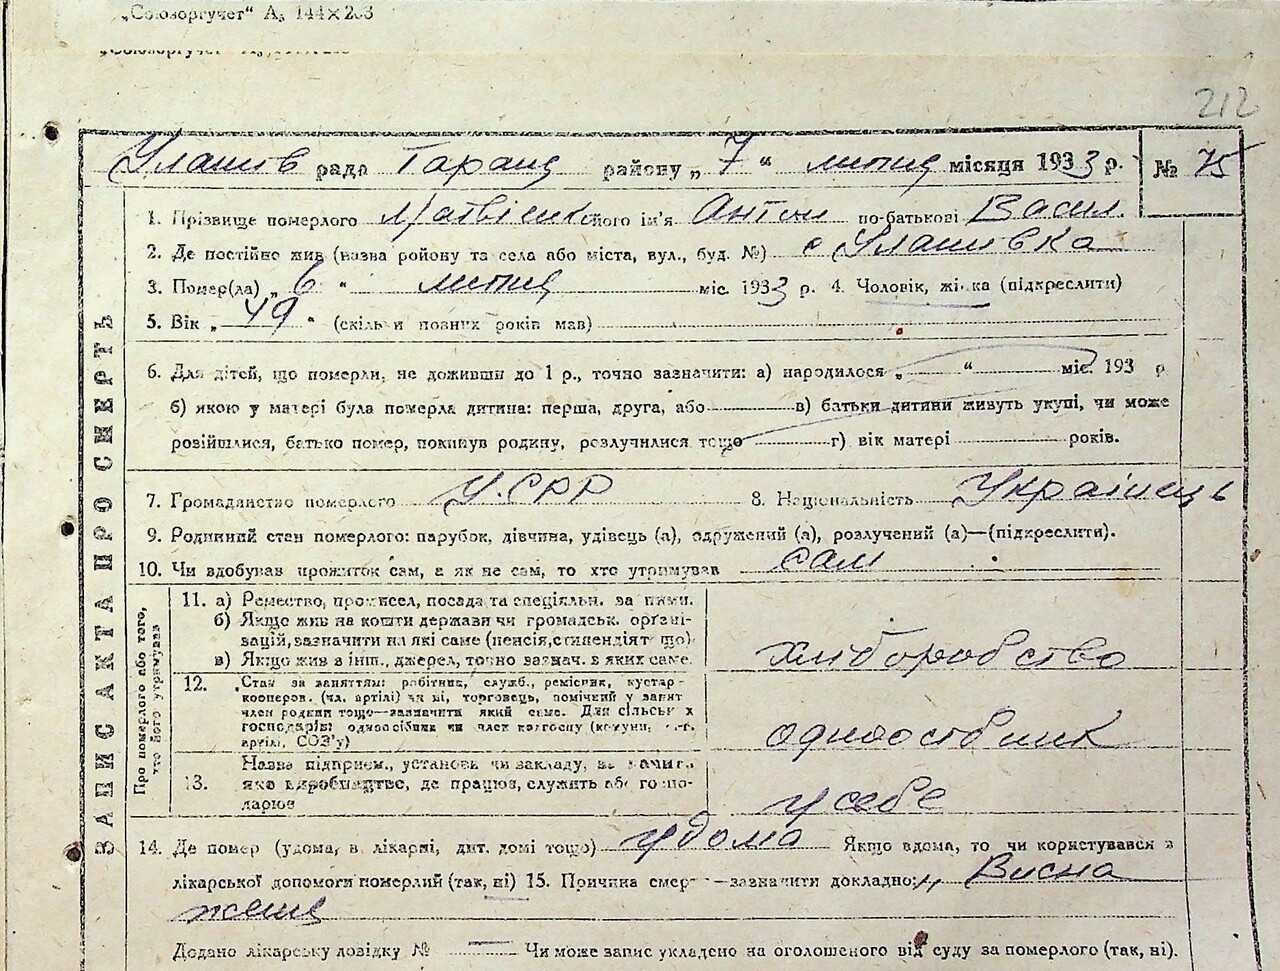 „Союзоргучет“ А₅ 144×203
212
Улашів рада Таращ району „7“ липня місяця 1933 р. № 75
1. Прізвище померлого Матвієнк його ім'я Антон по-батькові Васил.
2. Де постійно жив (назва ройону та села або міста, вул., буд. №) с Улашівка
3. Помер(ла) „6“ липня міс. 1933 р. 4. Чоловік, жінка (підкреслити)
5. Вік „49“ (скільки повних років мав)
6. Для дітей, що померли, не доживши до 1 р., точно зазначити: а) народилося „ “ міс. 193 р
б) якою у матері була померла дитина: перша, друга, або в) батьки дитини живуть укупі, чи може
розійшлися, батько помер, покинув родину, розлучилися тощо г) вік матері років.
7. Громадянство померлого У.СРР 8. Національність Українець
9. Родинний стан померлого: парубок, дівчина, удівець (а), одружений (а), розлучений (а)—(підкреслити).
10. Чи здобував прожиток сам, а як не сам, то хто утримував сам
ЗАПИС АКТА ПРО СМЕРТЬ
Про померлого або того, хто його утримував
11. а) Ремество, промисел, посада та спеціяльн. за ними.
б) Якщо жив на кошти держави чи громадськ. організацій, зазначити на які саме (пенсія, стипендія т що)
в) Якщо жив з інш., джерел, точно зазнач. з яких саме.
хліборобство
12. Стан за заняттям: робітник, служб., ремісник, кустар-
кооперов. (чл. артілі) чи ні, торговець, помічний у занят
член родини тощо—зазначити який саме. Для сільськ х
господарів: одноосібник чи член колгоспу (комуни,
артілі, СОЗ'у)
одноосібник
13. Назва підприєм., установи чи закладу,
яке виробництво, де працює, служить або госпо-
дарює
у себе
14. Де помер (удома, в лікарні, дит. домі тощо) удома Якщо вдома, то чи користувався з
лікарської допомоги померлий (так, ні) 15. Причина смерті—зазначити докладно: Висна
женя
Додано лікарську довідку № — Чи може запис укладено на оголошеного від суду за померлого (так, ні).